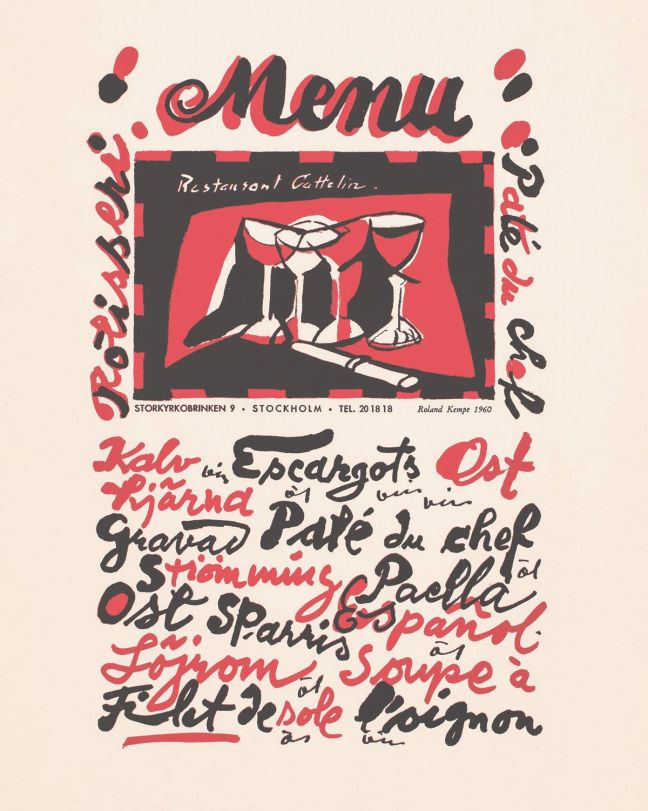 Menu
Rôtisseri.
Paté du chef
Restaurant Cattelin.
STORKYRKOBRINKEN 9 • STOCKHOLM • TEL. 20 18 18
Roland Kempe 1960
Kalv vin Escargots Ost
hjärna öl vin vin
Gravad Paté du chef
Strömming Paella öl
Ost Sparris Español.
Löjrom öl Soupe à
Filet de sole l'oignon
öl vin